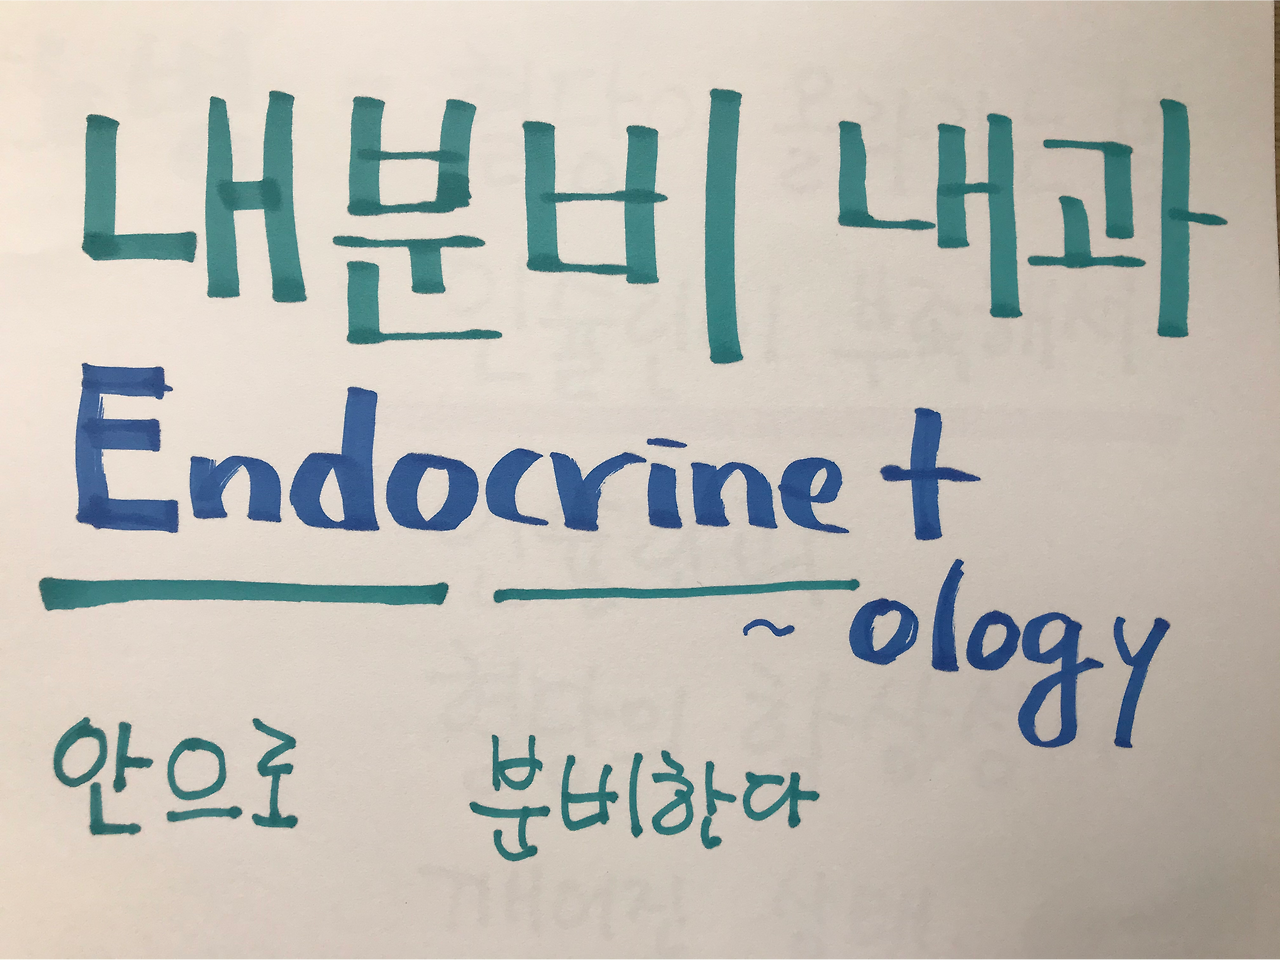 내분비 내과
Endocrine +
~ ology
안으로 분비한다